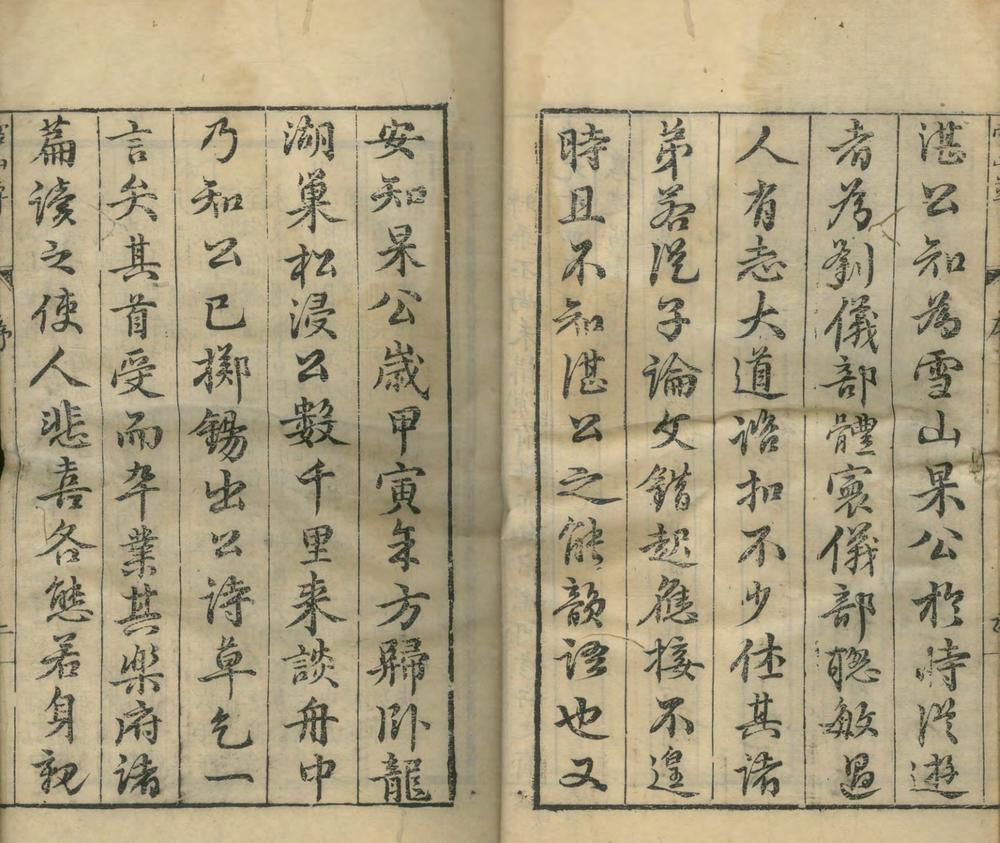 湛公知為雪山杲公於時從遊
者為劉儀部體寰儀部聰敏過
人有志大道諮扣不少住其諸
弟若從子論文錯起應接不遑
時且不知湛公之能韻語也又
安知杲公歲甲寅年方歸卧龍
湖巢松浸公數千里来談舟中
乃知公已擲錫出公詩草乞一
言矣其首受而卒業其樂府諸
篇讀之使人悲喜各態若身親